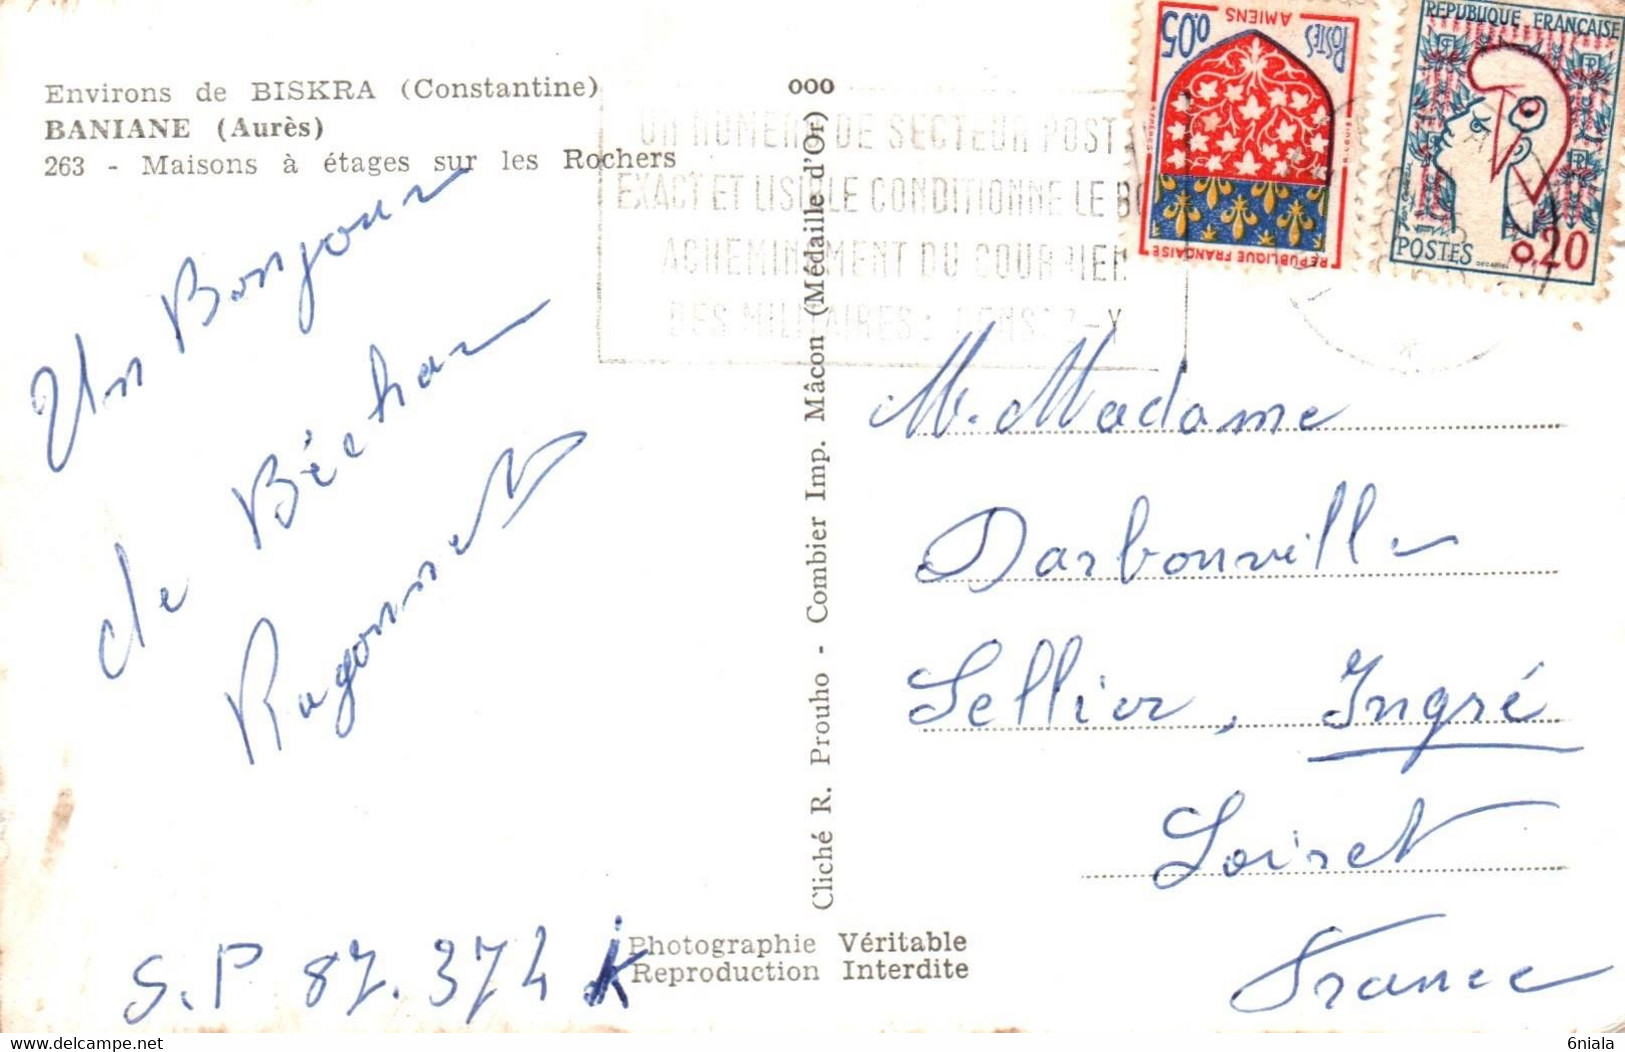 Environs de BISKRA (Constantine)
BANIANE (Aurès)
263 - Maisons à étages sur les Rochers
Un Bonjour
de Béchar
Ragonnet
S.P 87.374
ooo
Cliché R. Prouho - Combier Imp. Mâcon (Médaille d'Or)
Photographie Véritable
Reproduction Interdite
DE SECTEUR POST
EXACT ET LISIBLE CONDITIONNE LE
ACHEMINEMENT DU COURRIER
DES MILITAIRES :
AMIENS
POSTES
0,05
REPUBLIQUE FRANÇAISE
REPUBLIQUE FRANÇAISE
POSTES
0.20
M. Madame
Darbonville
Sellier, Ingré
Loiret
France
Delcampe.net
6niala